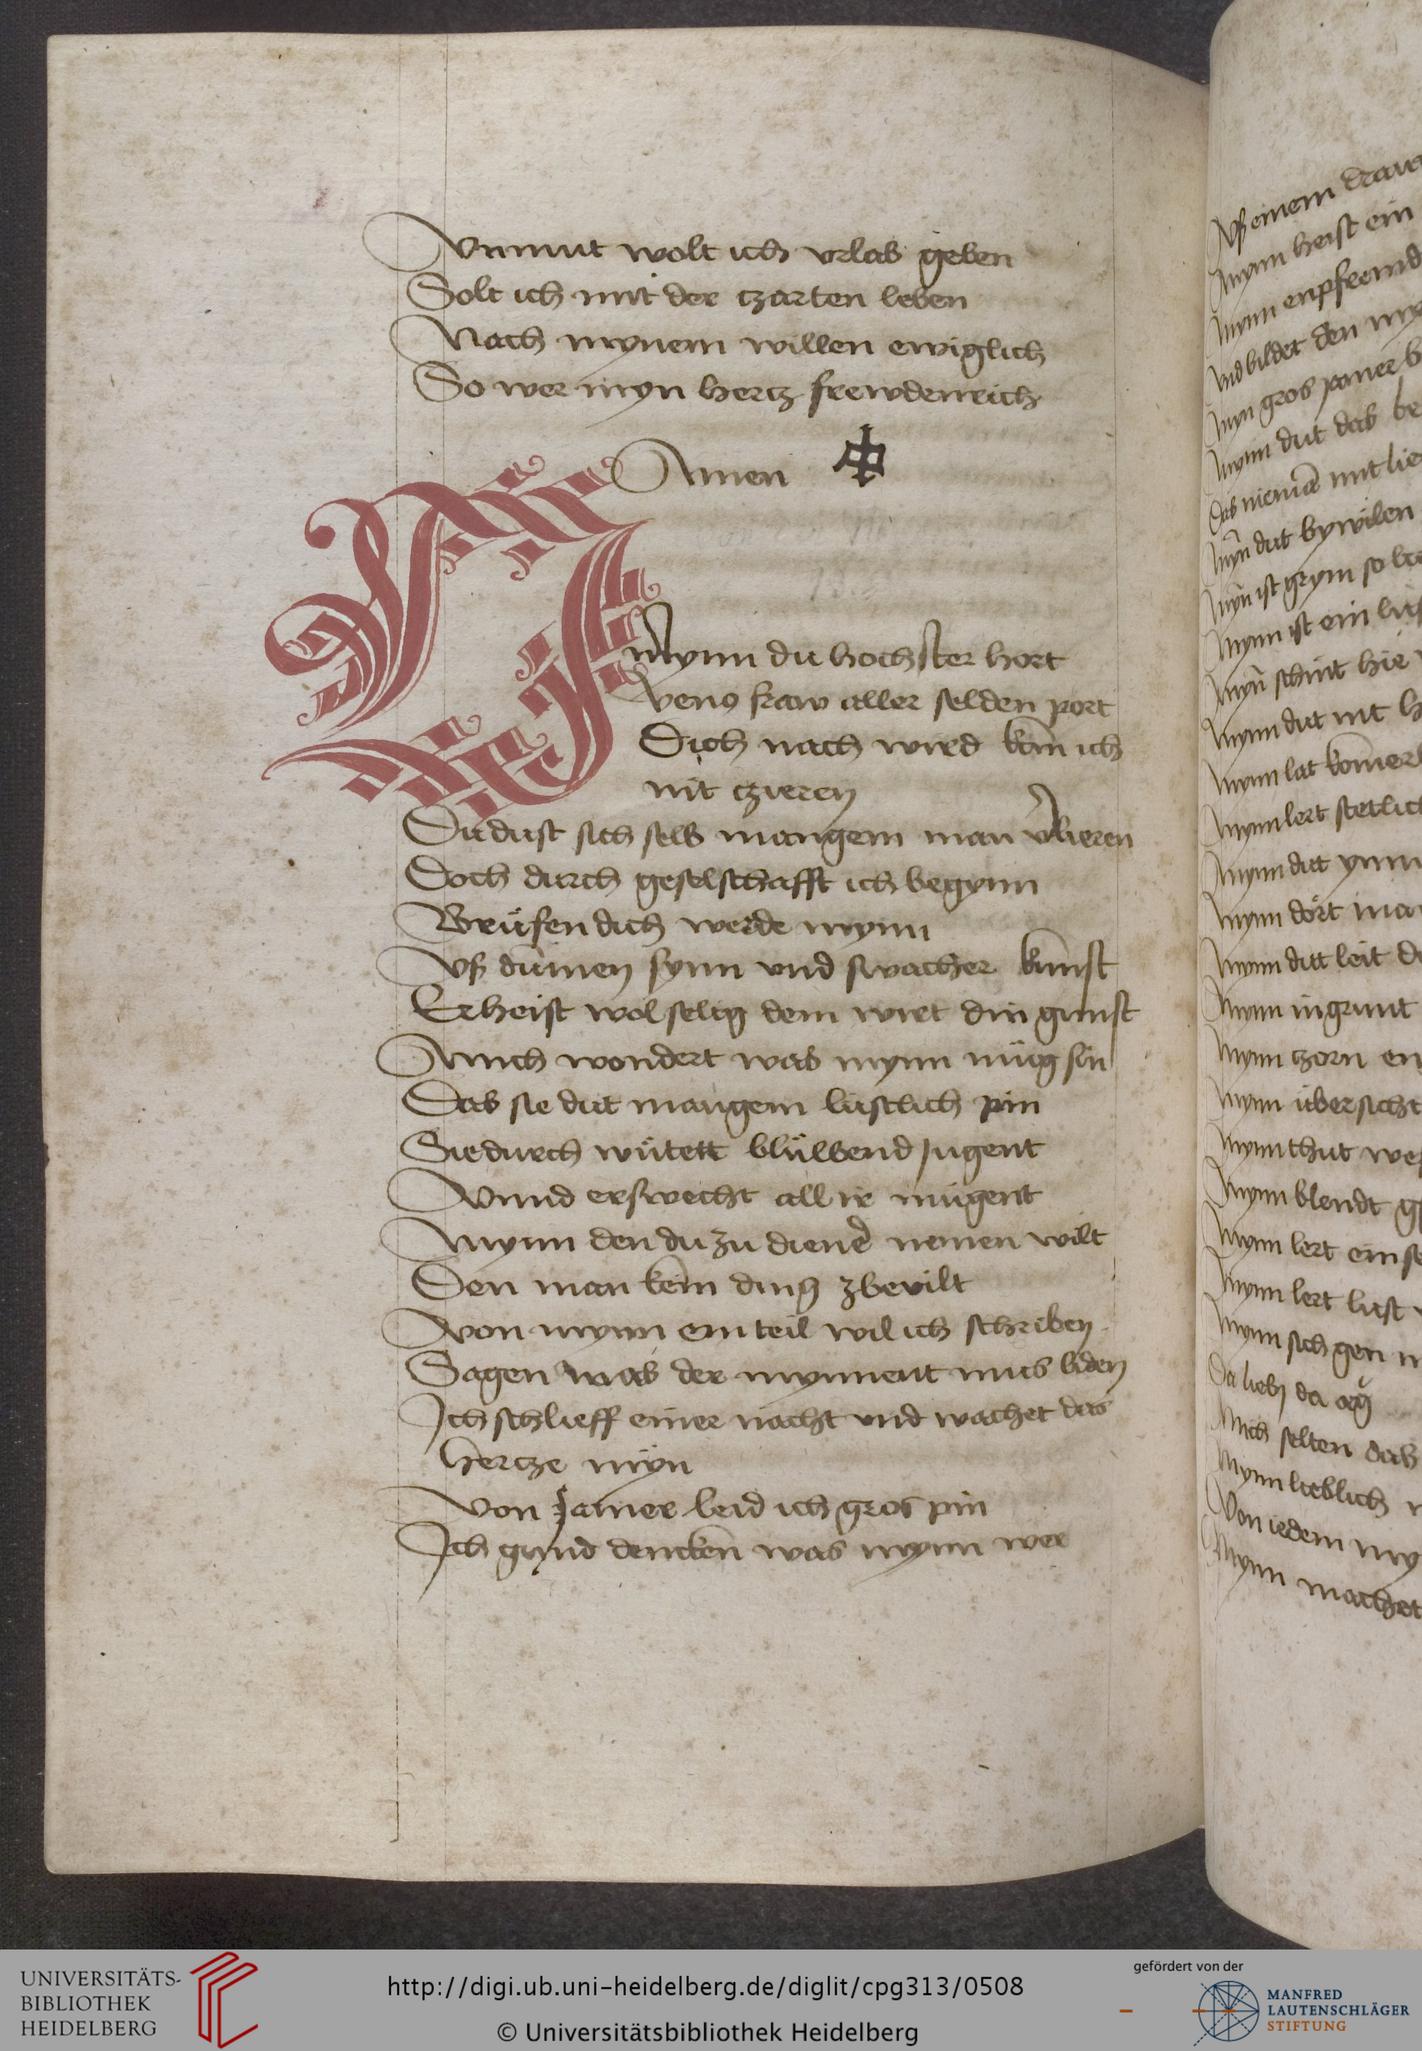 Vnmut wolt ich vrlab geben
Solt ich mit der czarten leben
Nach mynem willen ewiglich
So wer myn hertz frewdenrich
Amen
O
mynn du hochster hort
venus fraw aller selden port
Dich nach wird kan ich
nit czieren
Du dust sich selb mangem man v̓lieren
Doch durch geselschafft ich begynn
Brüfen dich werde mynn
Vß dümen synn vnd swacher kunst
Er heist wol selig dem wirt din gunst
Mich wondert was mynn müg sin
Das sie dut mangem lustlich pin
Sie durch wütett blüwend Jugent
Vnnd erswecht all ir mugent
Mynn den du zu diene͛ nemen wilt
Den man kein ding zbevilt
Von mynn ein teil wil ich schriben
Sagen was der mynnent mus liden
Ich schlieff einer nacht vnd wachet das
hercze myn
Von Jamer leid ich gros pin
Ich gund dencken was mynn wer
Vß einem
mynn heist ein
mynn enpfremd
vnd bildet den
myn gros
mynn dut das
das nieman mit lie
mȳn dut bywilen
mȳn ist grym so
mynn ist ein
mȳn schint hie
mynn dut nit
mynn lat
mynn lert stetlich
mynn dut
mynn
mynn dut leit
mynn in grunt
mynn zorn en
mynn übersicht
mynn thut
mynn blendt
mynn lert ein
mynn lert lust
mynn sich gen
Da
Mich selten das
mynn lieblich
Von iedem my
mynn machet
UNIVERSITÄTS-
BIBLIOTHEK
HEIDELBERG
http://digi.ub.uni-heidelberg.de/diglit/cpg313/0508
© Universitätsbibliothek Heidelberg
gefördert von der
MANFRED
LAUTENSCHLÄGER
STIFTUNG